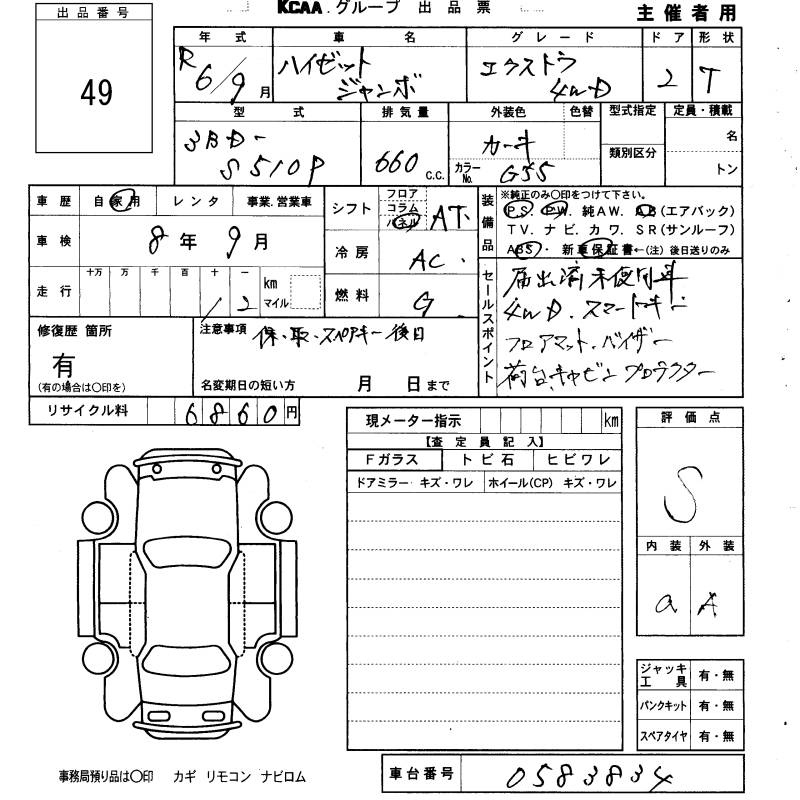 KCAA.グループ 出品票
主催者用
出品番号
49
年式 車名 グレード ドア 形状
R6/9月 ハイゼット ジャンボ エクストラ 4WD 2 T
型式 排気量 外装色 色替 型式指定 定員・積載
3BD-S510P 660 C.C. カーキ カラーNo. G55 類別区分 名 トン
車歴 自家用 レンタ 事業.営業車
車検 8年9月
走行 十万 万 千 百 十 一 km マイル
12
シフト フロア コラム パネル AT.
冷房 AC.
燃料 G
装備品 ※純正のみ〇印をつけて下さい。
P.S. P.W. 純AW. AB(エアバック)
TV. ナビ. カワ. SR(サンルーフ)
ABS・新車保証書←(注)後日送りのみ
セールスポイント
届出済未使用車
4WD.スマートキー
フロアマット.バイザー
荷台.キャビンプロテクター
修復歴 箇所
有
(有の場合は〇印を)
注意事項 保.取.スペアキー後日
名変期日の短い方 月 日まで
リサイクル料 6860円
現メーター指示 km
【査定員記入】
Fガラス トビ石 ヒビワレ
ドアミラー キズ・ワレ ホイール(CP) キズ・ワレ
評価点
S
内装 外装
a A
ジャッキ工具 有・無
パンクキット 有・無
スペアタイヤ 有・無
事務局預り品は〇印 カギ リモコン ナビロム
車台番号 0583834